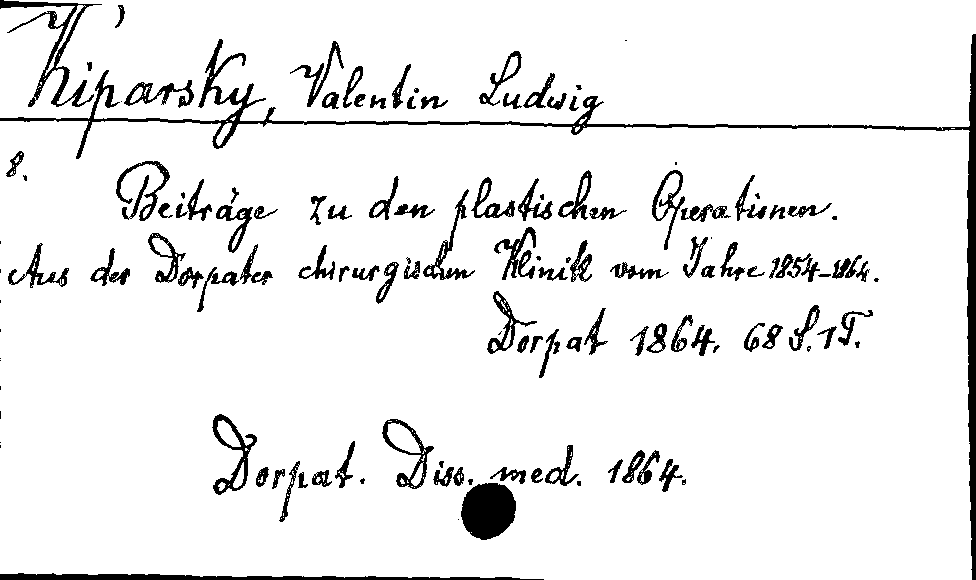 Kiparsky, Valentin Ludwig
8.
Beiträge zu den plastischen Operationen.
Aus der Dorpater chirurgischen Klinik vom Jahre 1854-1864.
Dorpat 1864. 68 S. 1 T.
Dorpat. Diss. med. 1864.